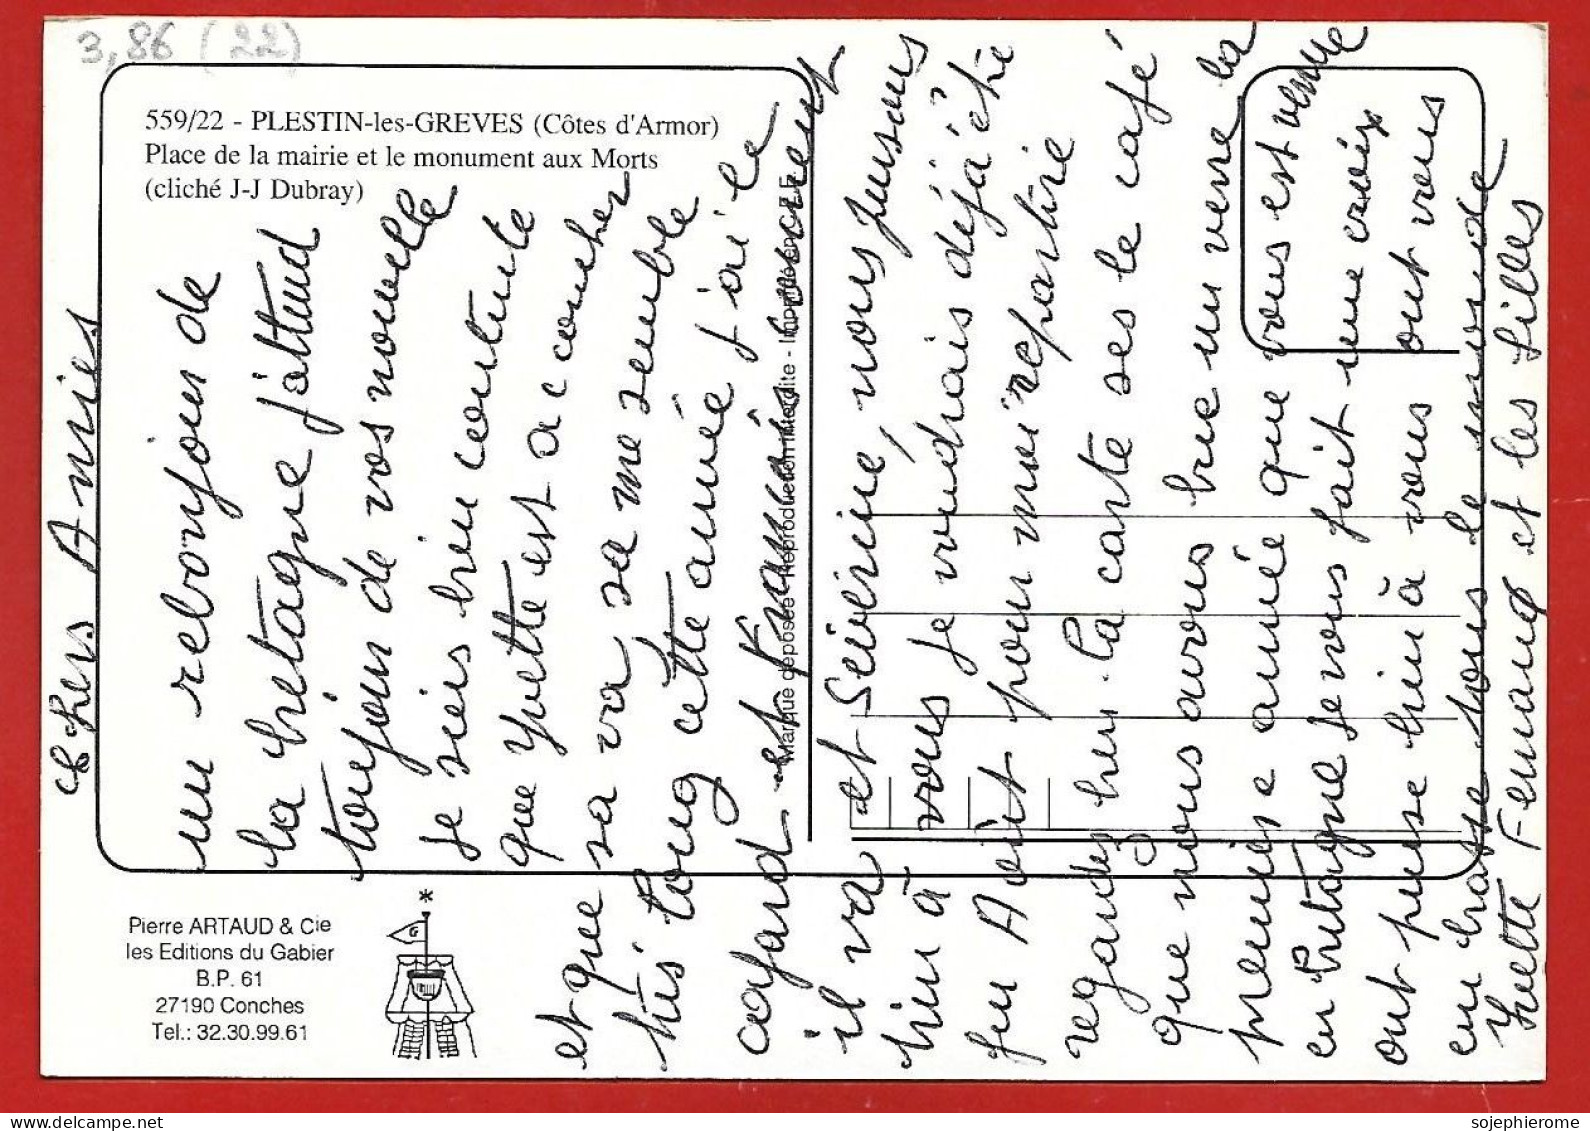 3,86 (22)
559/22 - PLESTIN-les-GREVES (Côtes d'Armor)
Place de la mairie et le monument aux Morts
(cliché J-J Dubray)
Marque déposée - Reproduction interdite - Imprimé en C.E.E.
Pierre ARTAUD & Cie
les Editions du Gabier
B.P. 61
27190 Conches
Tel.: 32.30.99.61
Chers Amies
un rebonjour de
la bretagne j'attend
toujour de vos nouvelle
je siers bien contente
que Yvette est a coucher
et que sa va sa me semble
bis long cette année j'ai le
cafard et Francis comment
il va et Séverine, nous pensons
bien à vous je voudrais déjà être
fin Août pour moi repartire
regarder bien la carte ses le café
que nous avons bue un verre la
premiere année que vous est venue
en bretagne je vous fait une croix
ont pense bien à vous ont vous
embrasse tous le monde
Yvette Fernand et les filles
sojephierome